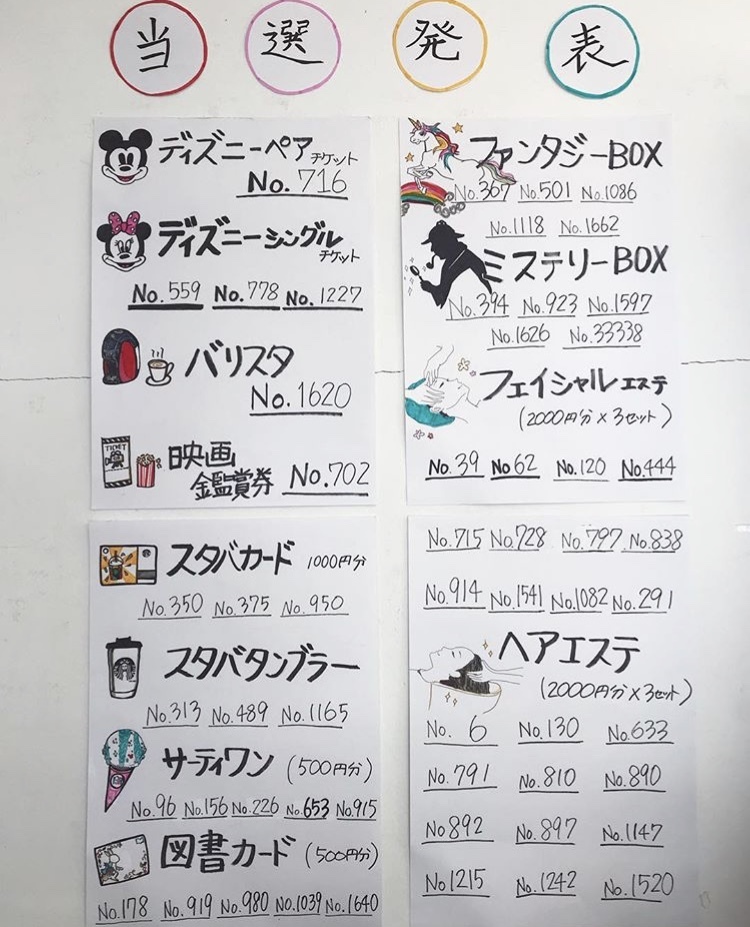 当選発表
ディズニーペアチケット
No.716
ディズニーシングルチケット
No.559 No.778 No.1227
バリスタ
No.1620
TICKET
映画鑑賞券 No.702
スタバカード 1000円分
No.350 No.375 No.950
スタバタンブラー
No.313 No.489 No.1165
サーティワン (500円分)
No.96 No.156 No.226 No.653 No.915
図書カード (500円分)
No.178 No.919 No.980 No.1039 No.1640
ファンタジーBOX
No.367 No.501 No.1086
No.1118 No.1662
ミステリーBOX
No.394 No.923 No.1597
No.1626 No.33338
フェイシャルエステ
(2000円分×3セット)
No.39 No.62 No.120 No.444
No.715 No.728 No.797 No.838
No.914 No.1541 No.1082 No.291
ヘアエステ
(2000円分×3セット)
No. 6 No.130 No.633
No.791 No.810 No.890
No892 No.897 No.1147
No1215 No.1242 No.1520